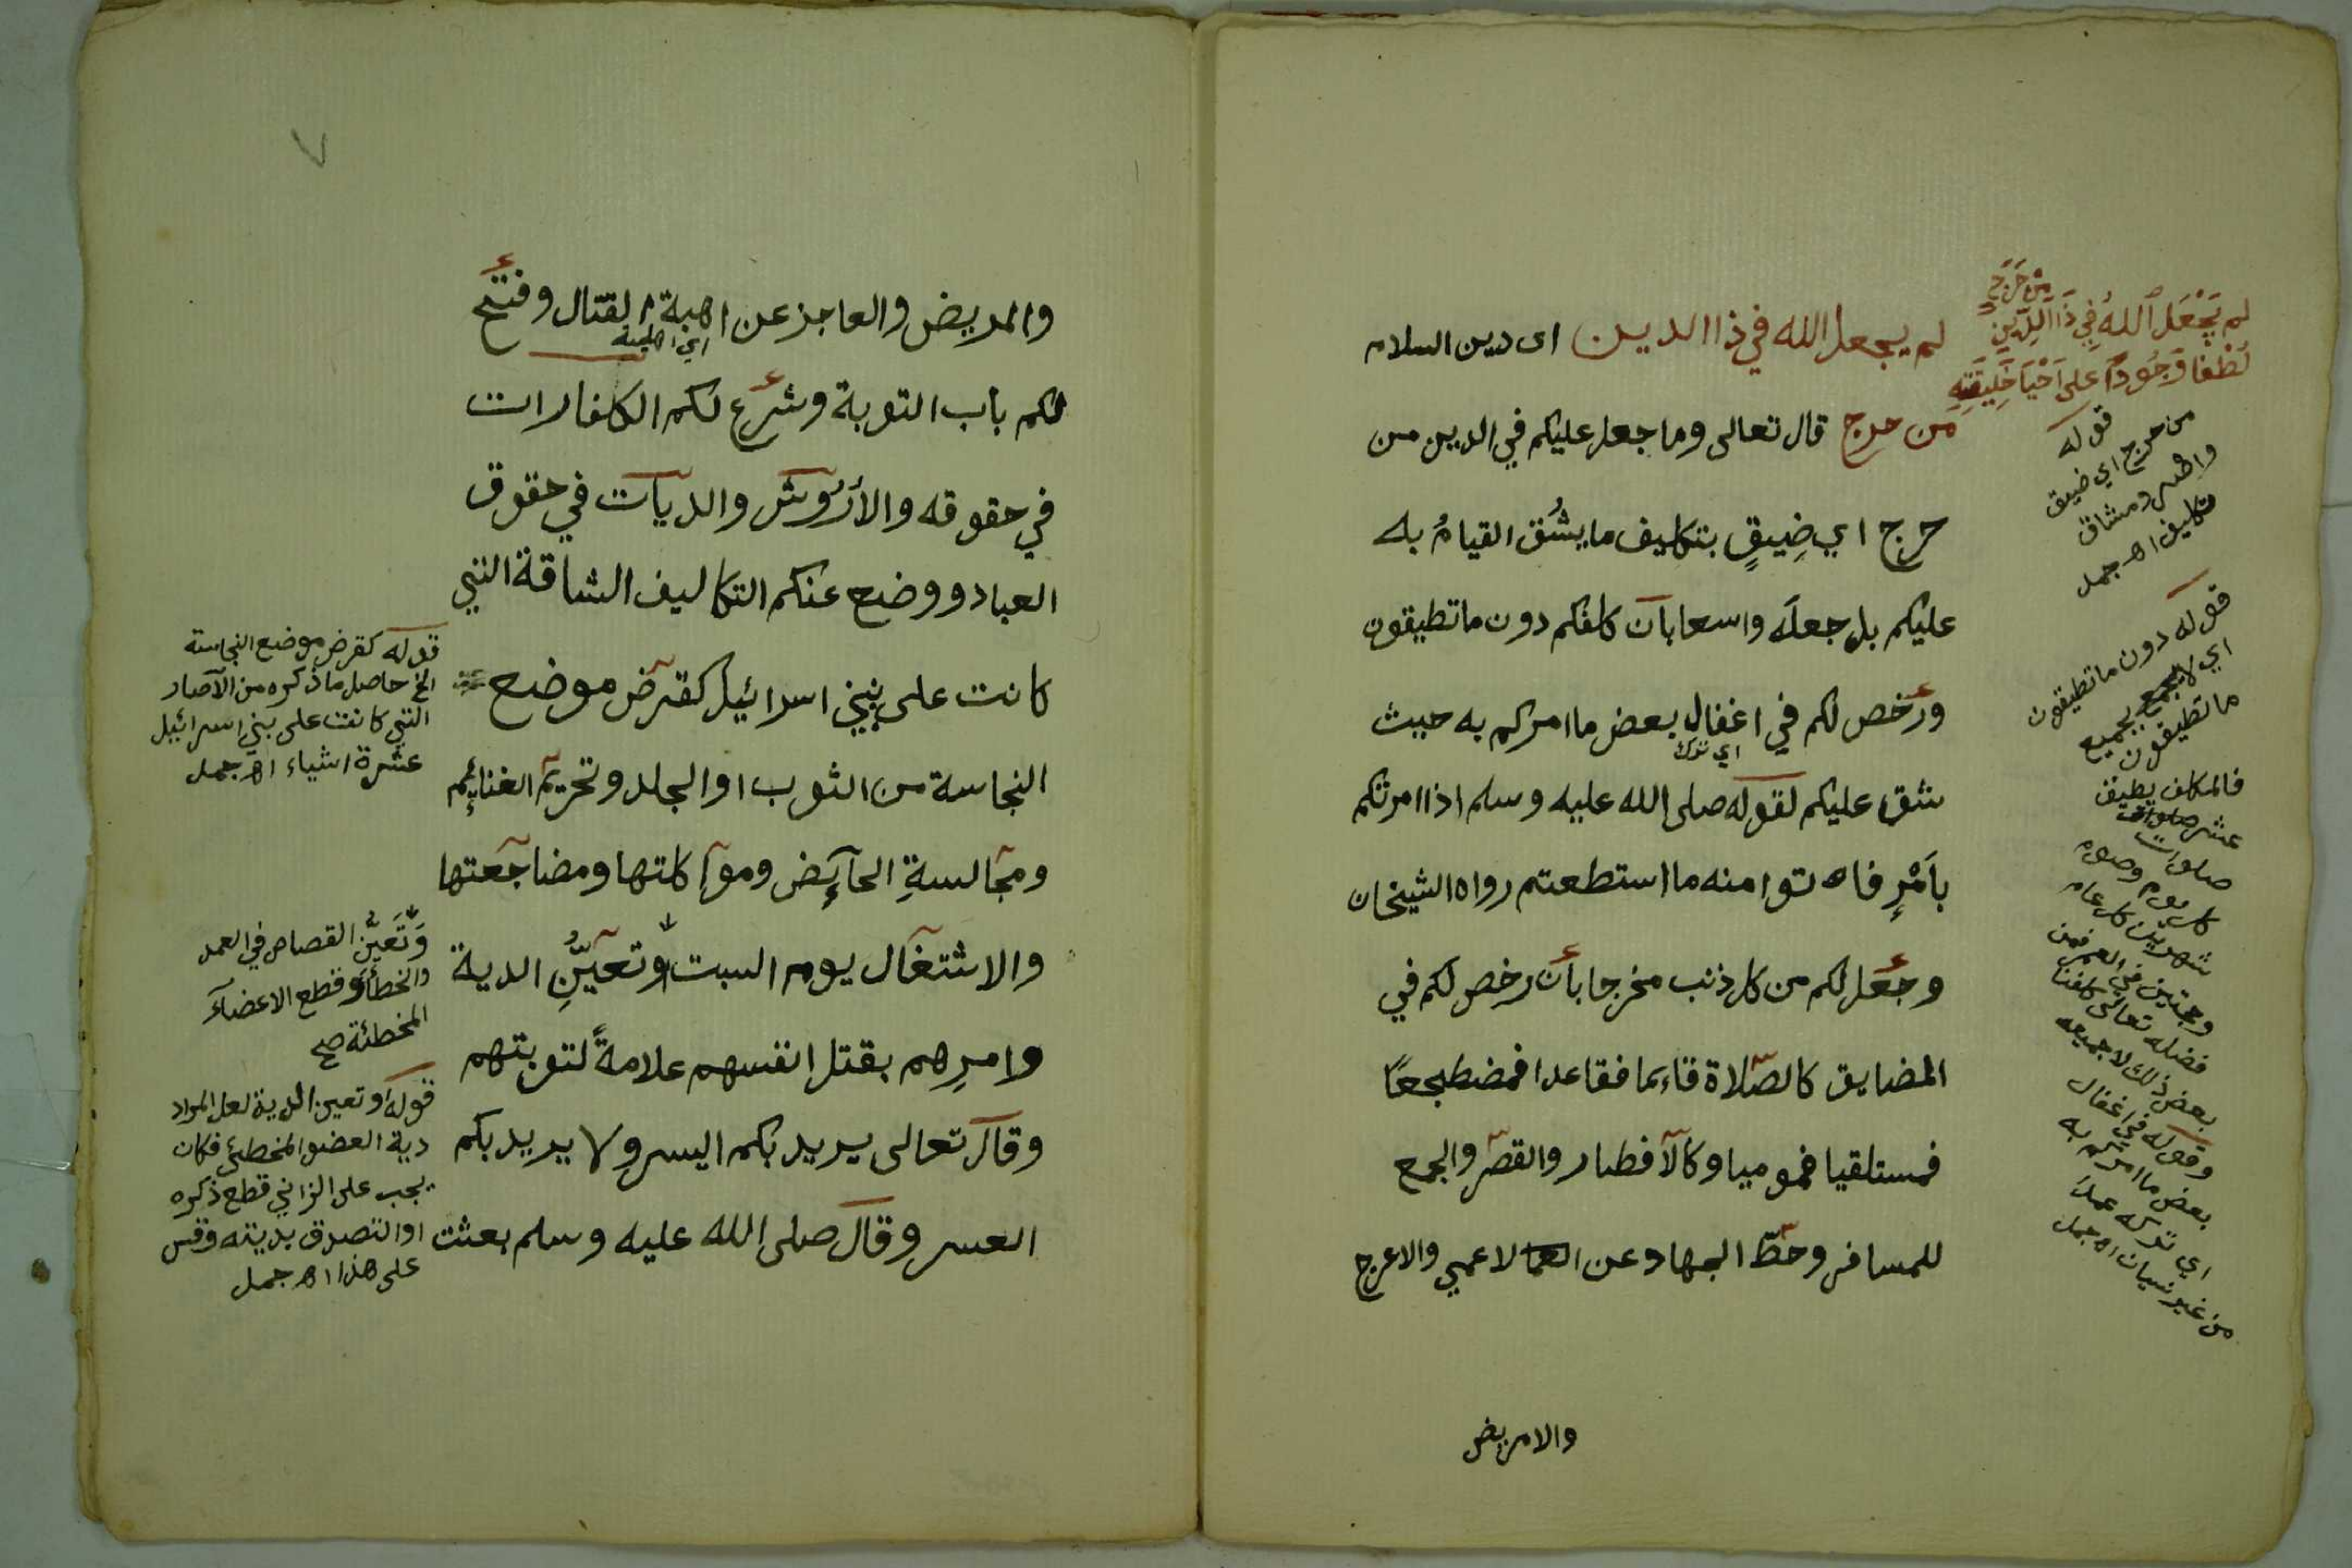 لم يجعل الله في ذا الدين اى دين السلام
من حرج قال تعالى وما جعل عليكم في الدين من
حرج اي ضِيقٍ بتكليف ما يشُق القيامُ به
عليكم بل جعله واسعا بان كلفكم دون ما تطيقون
ورخص لكم في اغفال بعض ما امركم به حيث
اي ترك
شق عليكم لقوله صلى الله عليه وسلم اذا امرتكم
بأَمْرٍ فاتوا منه ما استطعتم رواه الشيخان
وجعل لكم من كل ذنب مخرجا بأن رخص لكم في
المضايق كالصّلاة قائما فقاعدا فمضطجعًا
فمستلقيا فموميا وكالافطار والقصر والجمع
للمسافر وحطّ الجهاد عن الاعمي والاعرج
والامريض
مِنْ حَرَجٍ
لم يَجْعَلِ اللهُ فِي ذَا الدِّينِ
لُطْفًا وَجُودًا عَلى اَحْيَا خَلِيقَتِهِ
قوله
من حرج اي ضيق
واصر ومشاق
تكليف اهـ جمل
قوله دون ما تطيقون
اي لا بجميع
ما تطيقون
فالمكلف يطيق
عشر
صلوات
كل يوم وصوم
شهرين كل عام
وحجتين في العمر فمن
فضله تعالى كلفنا
بعض ذلك لا جميعه
وقوله في اغفال
بعض ما امركم به
اي تركه عمدا
من غير نسيان اهـ جمل
والمريض والعاجز عن اهبة القتال وفتح
لكم باب التوبة وشرع لكم الكفارات
في حقوقه والأرُوش والديات في حقوق
العباد ووضع عنكم التكاليف الشاقة التي
كانت على بني اسرائيل كقرض موضع
النجاسة من الثوب او الجلد وتحريم الغنائم
ومجالسةِ الحائض ومؤاكلتها ومضاجعتها
والاشتغال يوم السبت وتعيُّنِ الدية
وامرِهم بقتل انفسهم علامةً لتوبتهم
وقال تعالى يريد بكم اليسر ولا يريد بكم
العسر وقال صلى الله عليه وسلم بعثت
قوله كقرض موضع النجاسة
الخ حاصل ما ذكره من الآصار
التي كانت على بني اسرائيل
عشرة اشياء اهـ جمل
وَتَعَيُّنِ القصاص في العمد
والخطأ وقطع الاعضآء
المخطئة صح
قوله وتعين الدية لعل المراد
دية العضو المخطئ فكان
يجب على الزاني قطع ذكره
او التصدق بديته وقس
على هذا اهـ جمل